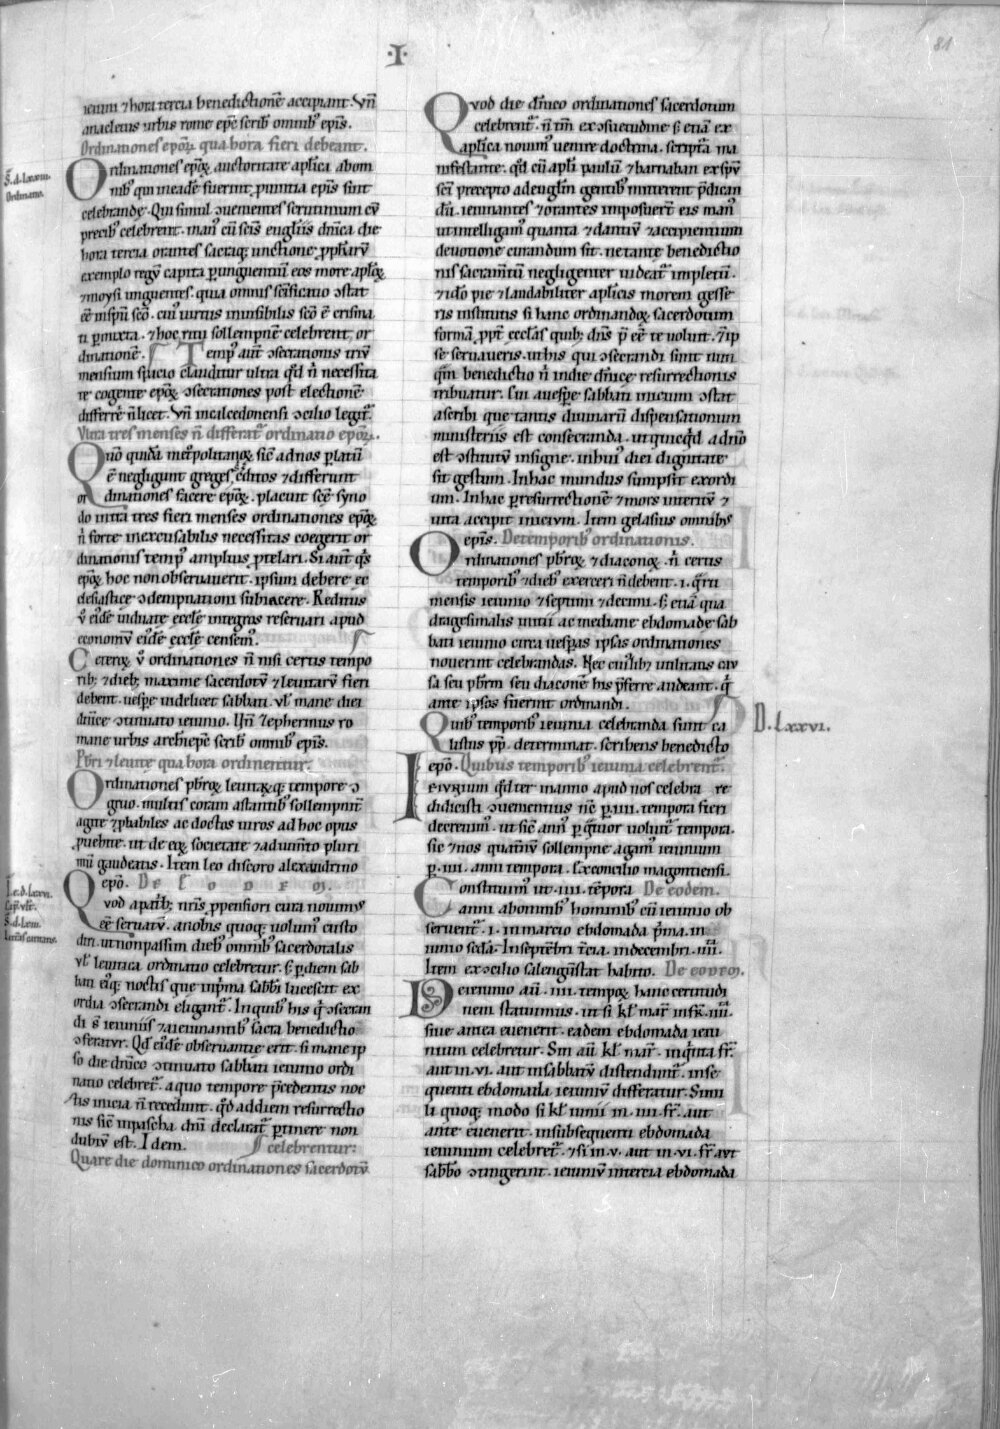 ·I·
81
ieium ⁊ hora tercia benedictionē accipiant. Vn̄
anacletus urbis rome ep̄c scrib̄ omnib' ep̄is.
Ordinationes ep̄oꝝ qua hora fieri debeant.
Ordinationes ep̄oꝝ auctoritate apl̄ica ab om
nib' qui in eadē fuerint puintia ep̄is sint
celebrande. Qui simul ↄuenientes scrutinium cū
precib' celebrent. man' cū sc̄is eugl̄iis dn̄ica die
hora tercia orantes sacraq; unctione ꝓphārū
exemplo regū capita ꝑunguentū eos more apl̄oꝝ
⁊ moysi unguentes. quia omnis sc̄ificatio ↄstat
eē in sp̄u sc̄o. cui' uirtus inuisibilis sc̄o ē crisma
ti ꝑmixta. ⁊ hoc ritu sollempnē celebrent or
dinationē. Temp' aut̄ ↄsecrationis triū
mensium spacio clauditur ultra qd̄ n̄ necessita
te cogente ep̄oꝝ ↄsecrationes post electionē
differre n̄ licet. Vn̄ in calcedonensi ↄcilio legit̄.
Vltra tres menses n̄ differat̄ ordinatio ep̄oꝝ.
Quō quidā metropolitanoꝝ sic̄ ad nos ꝑlatū
ē negligunt greges c̄ditos ⁊ differunt
ordinationes facere ep̄oꝝ. placuit sc̄e syno
do intra tres fieri menses ordinationes ep̄oꝝ
n̄ forte inexcusabilis necessitas coegerit or
dinationis temp' amplius ꝓtelari. Si aut̄ q̄s
ep̄oꝝ hoc non obseruauerit. ipsum debere ec
clesiastice ↄdempnationi subiacere. Reditus
ū eid̄e uiduate eccl̄e integros reseruari apud
economū eid̄e eccl̄e censem'.
Ceteroꝝ ū ordinationes n̄ nisi certis tempo
rib; ⁊ dieb; maxime sacerdotū ⁊ leuitarū fieri
debent. uespe uidelicet sabbati. ul̄ mane diei
dn̄ice ↄtinuato ieiunio. Vn̄ Zepherinus ro
mane urbis archiep̄c scrib̄ omnib' ep̄is.
Pb̄ri ⁊ leuite qua hora ordinentur.
Ordinationes pb̄roꝝ leuitaꝝq; tempore ↄ
gruo. multis coram astantib' sollempnit̄
agite ⁊ ꝓbabiles ac doctos uiros ad hoc opus
ꝓuehite. ut de eoꝝ societate ⁊ adium̄to pluri
mū gaudeatis. Item leo discoro alexandrino
ep̄o. De eodem.
Quod a patrib; nr̄is ꝓpensiori cura nouim'
eē seruatū. a nobis quoq; uolum' custo
diri. ut non passim dieb' omnib' sacerdotalis
ul̄ leuitica ordinatio celebretur. s; ꝑ diem sab
bati eiq; noctis que in p̄ma sabbi lucescit ex
ordia ↄsecrandi eligant̄. In quib' his q̄ ↄsecran
di s̄ ieiuniis ⁊ a ieiunantib' sacra benedictio
ↄferatur. Qd̄ eid̄e obseruantie erit. si mane ip
so die dn̄ico ↄtinuato sabbati ieiunio ordi
natio celebret̄. a quo tempore p̄cedentis noc
tis inicia n̄ recedunt. qd̄ ad diem resurrectio
nis sic̄ in pascha dn̄i declarat̄ ꝑtinere non
dubiū est. Idem. celebrentur.
Quare die dominico ordinationes sacerdotū
Quod die dn̄ico ordinationes sacerdotum
celebrent̄. n̄ tm̄ ex ↄsuetudine s; etiā ex
apl̄ica nouim' uenire doctrina. scriptr̄a ma
nifestante. qd̄ cū apl̄i paulū ⁊ barnaban ex sp̄u
sc̄i precepto ad eugl̄m gentib' mitterent p̄dican
dū. ieiunantes ⁊ orantes imposuer̄t eis man'
ut intelligam' quanta ⁊ dantiū ⁊ accipientium
deuotione curandum sit. ne tante benedictio
nis sacram̄tū negligenter uideat̄ impletū.
⁊ idō pie ⁊ laudabiliter apl̄icis morem gesse
ris institutis si hanc ordinandoꝝ sacerdotum
formā ꝑpt̄ eccl̄as quib; dn̄s p̄ eē te uoluit. ⁊ ip
se seruaueris. urbis qui ↄsecrandi sunt num
qm̄ benedictio n̄ in die dn̄ice resurrectionis
tribuatur. Cui a uesp̄e sabbati inicium ↄstat
ascribi que tantis diuinarū dispensationum
ministeriis est consecranda. ut quicqd̄ a dn̄o
est ↄstitutū insigne. in hui' diei dignitate
sit gestum. In hac mundus sumpsit exordi
um. In hac ꝑ resurrectionē ⁊ mors interitū ⁊
uita accipit inicium. Item gelasius omnib'
ep̄is. De temporib' ordinationis.
Ordinationes pb̄roꝝ ⁊ diaconoꝝ n̄ certis
temporib' ⁊ dieb' exerceri n̄ debent. i. q̄rti
mensis ieiunio ⁊ septimi ⁊ decimi. s; etiā qua
dragesimalis initii ac mediane ebdomade sab
bati ieiunio circa uesp̄as ipsas ordinationes
nouerint celebrandas. Nec cui'lib; utilitatis cau
sa seu pb̄rm seu diaconē his p̄ferre audeant. q̄
ante ipsos fuerint ordinandi.
Quib' temporib' ieiunia celebranda sunt ca
listus pp̄. determinat. scribens benedicto
ep̄o. Quibus temporib' ieiunia celebrent̄.
Ieiunium qd̄ ter in anno apud nos celebra re
didicisti ↄuenientius n̄c ꝑ iiii. tempora fieri
decreuim'. ut sic̄ ann' ꝑ q̄tuor uoluit̄ tempora.
sic ⁊ nos quatnū sollempne agam' ieiunium
ꝑ. iiii. anni tempora. Ex concilio magontiensi.
Constituim' ut. iiii. tēpora De eodem.
anni ab omnib' hominib' cū ieiunio ob
seruent̄. i. in marcio ebdomada p̄ma. in
iunio sc̄da. In septēbri t̄cia. in decembri. iiii.
Item ex ↄcilio salengūstat habito. De eodem.
De ieiunio aū. iiii. tempoꝝ hanc certitudi
nem statuimus. ut si kl̄ mar̄ in fr̄. iiii.
siue antea euenerit. eadem ebdomada ieiu
nium celebretur. Sin aū kl̄ mar̄. in q̄nta fr̄.
aut in. vi. aut in sabbatū distendunt̄. in se
quenti ebdomada ieiuniū differatur. Simi
li quoq; modo si kl̄ iunii in. iiii. fr̄. aut
ante euenerit. in subsequenti ebdomada
ieiunium celebret̄. ⁊ si in. v. aut in. vi. fr̄ aut
sabb̄o ↄtingerint. ieiuniū in tercia ebdomada
D. Lxxvi.